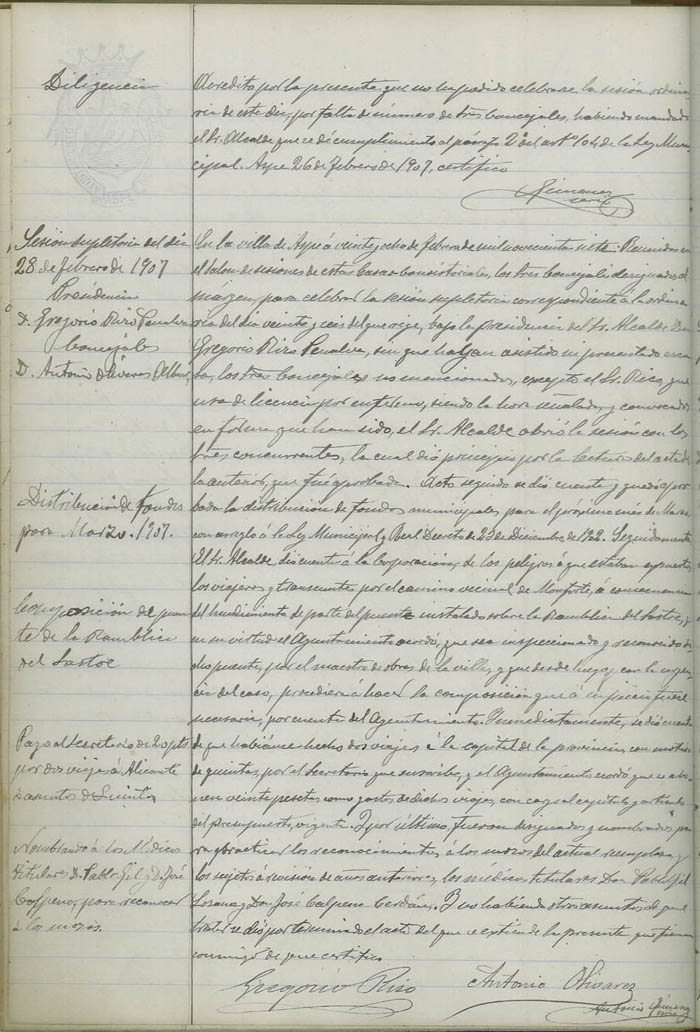 Diligencia
Acredito por la presente que no ha podido celebrarse la sesión ordina
ria de este dia, por falta de número de tres concejales, habiendo mandado
el Sr. Alcalde que se dé cumplimiento al párrafo 2º del artº 104 de la Ley Muni
cipal. Aspe 26 de Febrero de 1907, certifico
Gimenez
Sesión supletoria del dia
28 de febrero de 1907
Presidencia
D. Gregorio Rizo Penalva
Concejales
D. Antonio Olivares
En la villa de Aspe á veinte y ocho de Febrero de mil novecientos siete: Reunidos en
el Salon de sesiones de estas Casas Consistoriales, los tres concejales designados al
márgen, para celebrar la sesión supletoria correspondiente á la ordina
ria del dia veinte y seis del que rige, bajo la presidencia del Sr. Alcalde Don
Gregorio Rizo Penalva, sin que hayan asistido ni presentado escu
sa, los tres Concejales no mencionados, excepto el Sr. Rico, que
usa de licencia por enfermo, siendo la hora señalada, y convocados
en forma que han sido, el Sr. Alcalde abrió la sesión con los
tres concurrentes, la cual dió principio por la lectura del acta de
la anterior, que fué aprobada. Acto seguido se dió cuenta y quedó apro
Distribución de fondos
para Marzo. 1907.
bada la distribución de fondos municipales para el próximo més de Marzo
con arreglo á la Ley Municipal y Real Decreto de 23 de Diciembre de 1902. Seguidamente
El Sr. Alcalde dió cuenta á la Corporación, de los peligros á que estaban expuestos
los viajeros y transeuntes por el camino vecinal de Monforte, á consecuencia
Composición del puen
te de la Rambla
del Sastre
del hundimiento de parte del puente instalado sobre la Rambla del Sastre, y
en su virtud el Ayuntamiento acordó, que sea inspeccionado y reconocido di
cho puente, por el maestro de obras de la villa, y que desde luego, y con la urgen
cia del caso, procediera á hacer la composición que á su juicio fuere
necesaria, por cuenta del Ayuntamiento. Inmediatamente, se dió cuenta
Pago al secretario de 20 ptas
por dos viajes á Alicante
asuntos de Quintas
de que habíanse hecho dos viajes á la capital de la provincia con motivo
de quintas, por el Secretario que suscribe, y el Ayuntamiento acordó que se abo
nen veinte pesetas como gastos de dichos viajes, con cargo al capítulo y artículo
del presupuesto, vigente. Y por último, fueron designados y nombrados pa
Nombrando á los Médicos
titulares D. Pablo Gil y D. José
Calpena, para reconocer
á los mozos.
ra practicar los reconocimientos á los mozos del actual reemplazo y
los sujetos á revisión de años anteriores, los médicos titulares Don Pablo Gil
y Don José Calpena Cerdán. Y no habiendo otros asuntos de que
tratar se dió por terminado el acto del que se extiende la presente que firman
conmigo de que certifico
Gregorio Rizo
Antonio Olivarez
Antonio Gimenez